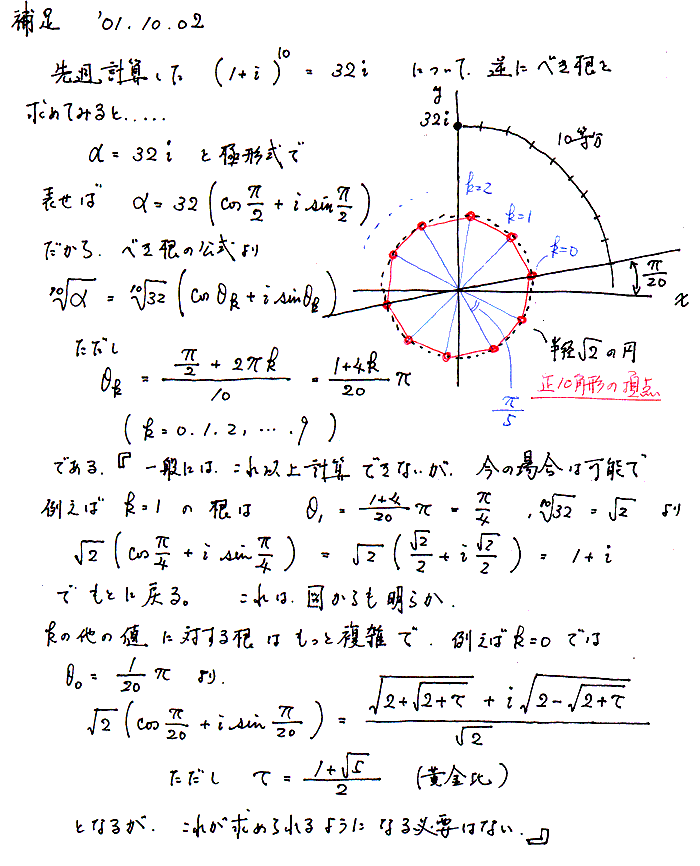 補足 '01.10.02
先週計算した (1+i)^10 = 32i について、逆にべき根を
求めてみると.....
α = 32i と極形式で
表せば α = 32(cos π/2 + i sin π/2)
だから、べき根の公式より
¹⁰√α = ¹⁰√32 (cos θk + i sin θk)
ただし
θk = (π/2 + 2πk)/10 = (1+4k)/20 π
(k = 0.1.2, … .9)
y
32i
10等分
k=2
k=1
k=0
π/20
x
半径√2の円
正10角形の頂点
π/5
である。『一般には、これ以上計算できないが、今の場合は可能で
例えば k=1 の根は θ₁ = (1+4)/20 π = π/4 , ¹⁰√32 = √2 より
√2 (cos π/4 + i sin π/4) = √2 (√2/2 + i √2/2) = 1 + i
でもとに戻る。 これは、図からも明らか。
kの他の値に対する根はもっと複雑で、例えばk=0では
θ₀ = 1/20 π より、
√2 (cos π/20 + i sin π/20) = (√(2+√(2+τ)) + i√(2-√(2+τ)))/√2
ただし τ = (1+√5)/2 (黄金比)
となるが、これが求められるようになる必要はない.』